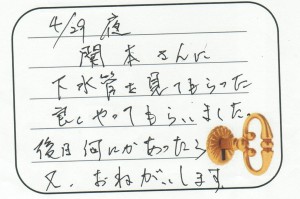 4/29 夜
関本さんに
下水管を見てもらった
良くやってもらいました.
後日何にかあったら
又、おねがいします.